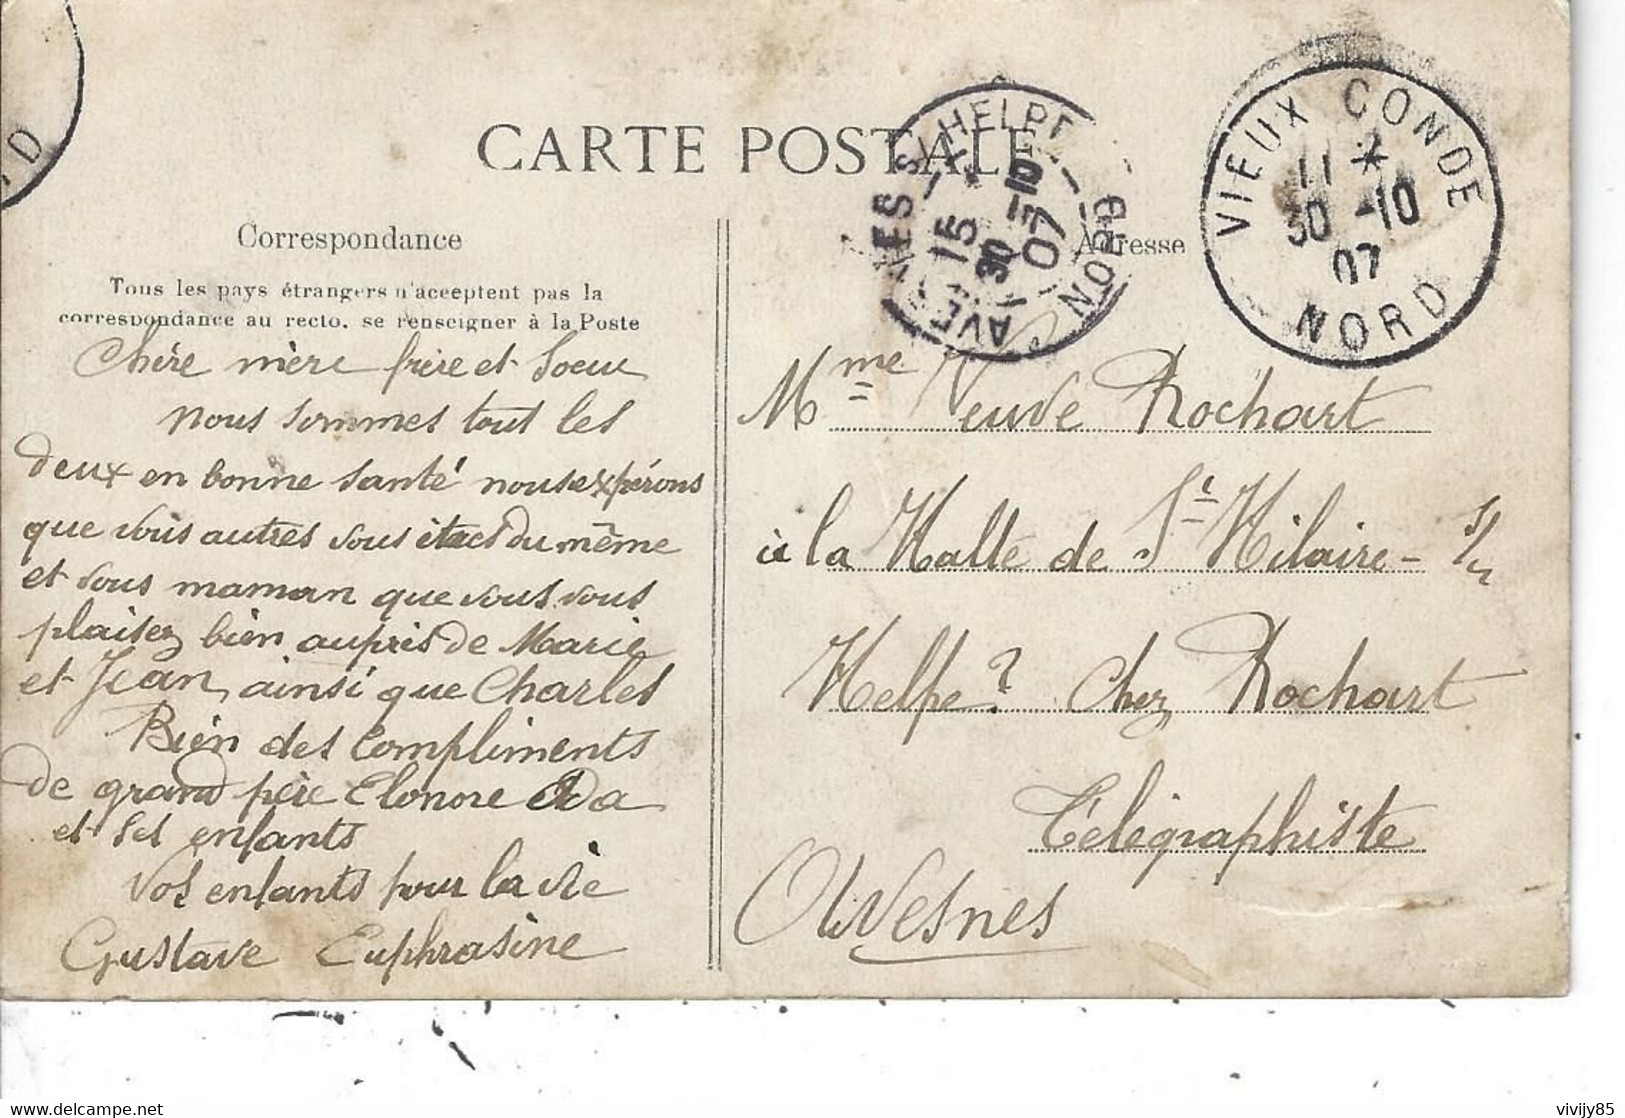 CARTE POSTALE
Correspondance
Tous les pays étrangers n'acceptent pas la
correspondance au recto, se renseigner à la Poste
Chére mère frère et Soeur
nous sommes tout les
deux en bonne santé nous expérons
que vous autres vous étes du même
et vous maman que vous vous
plaisez bien auprès de Marie
et Jean, ainsi que Charles
Bien des Compliments
de grand père Elonore Oda
et Ses enfants
Vos enfants pour la vie
Gustave Euphrasine
AVESNES S/ HELPE
15
30 -10
07
NORD
VIEUX CONDE
11 *
30 -10
07
NORD
Adresse
Mme Veuve Rochart
à la Halte de St Hilaire - s/
Helpe? chez Rochart
Télégraphiste
Avesnes
D
vivijy85